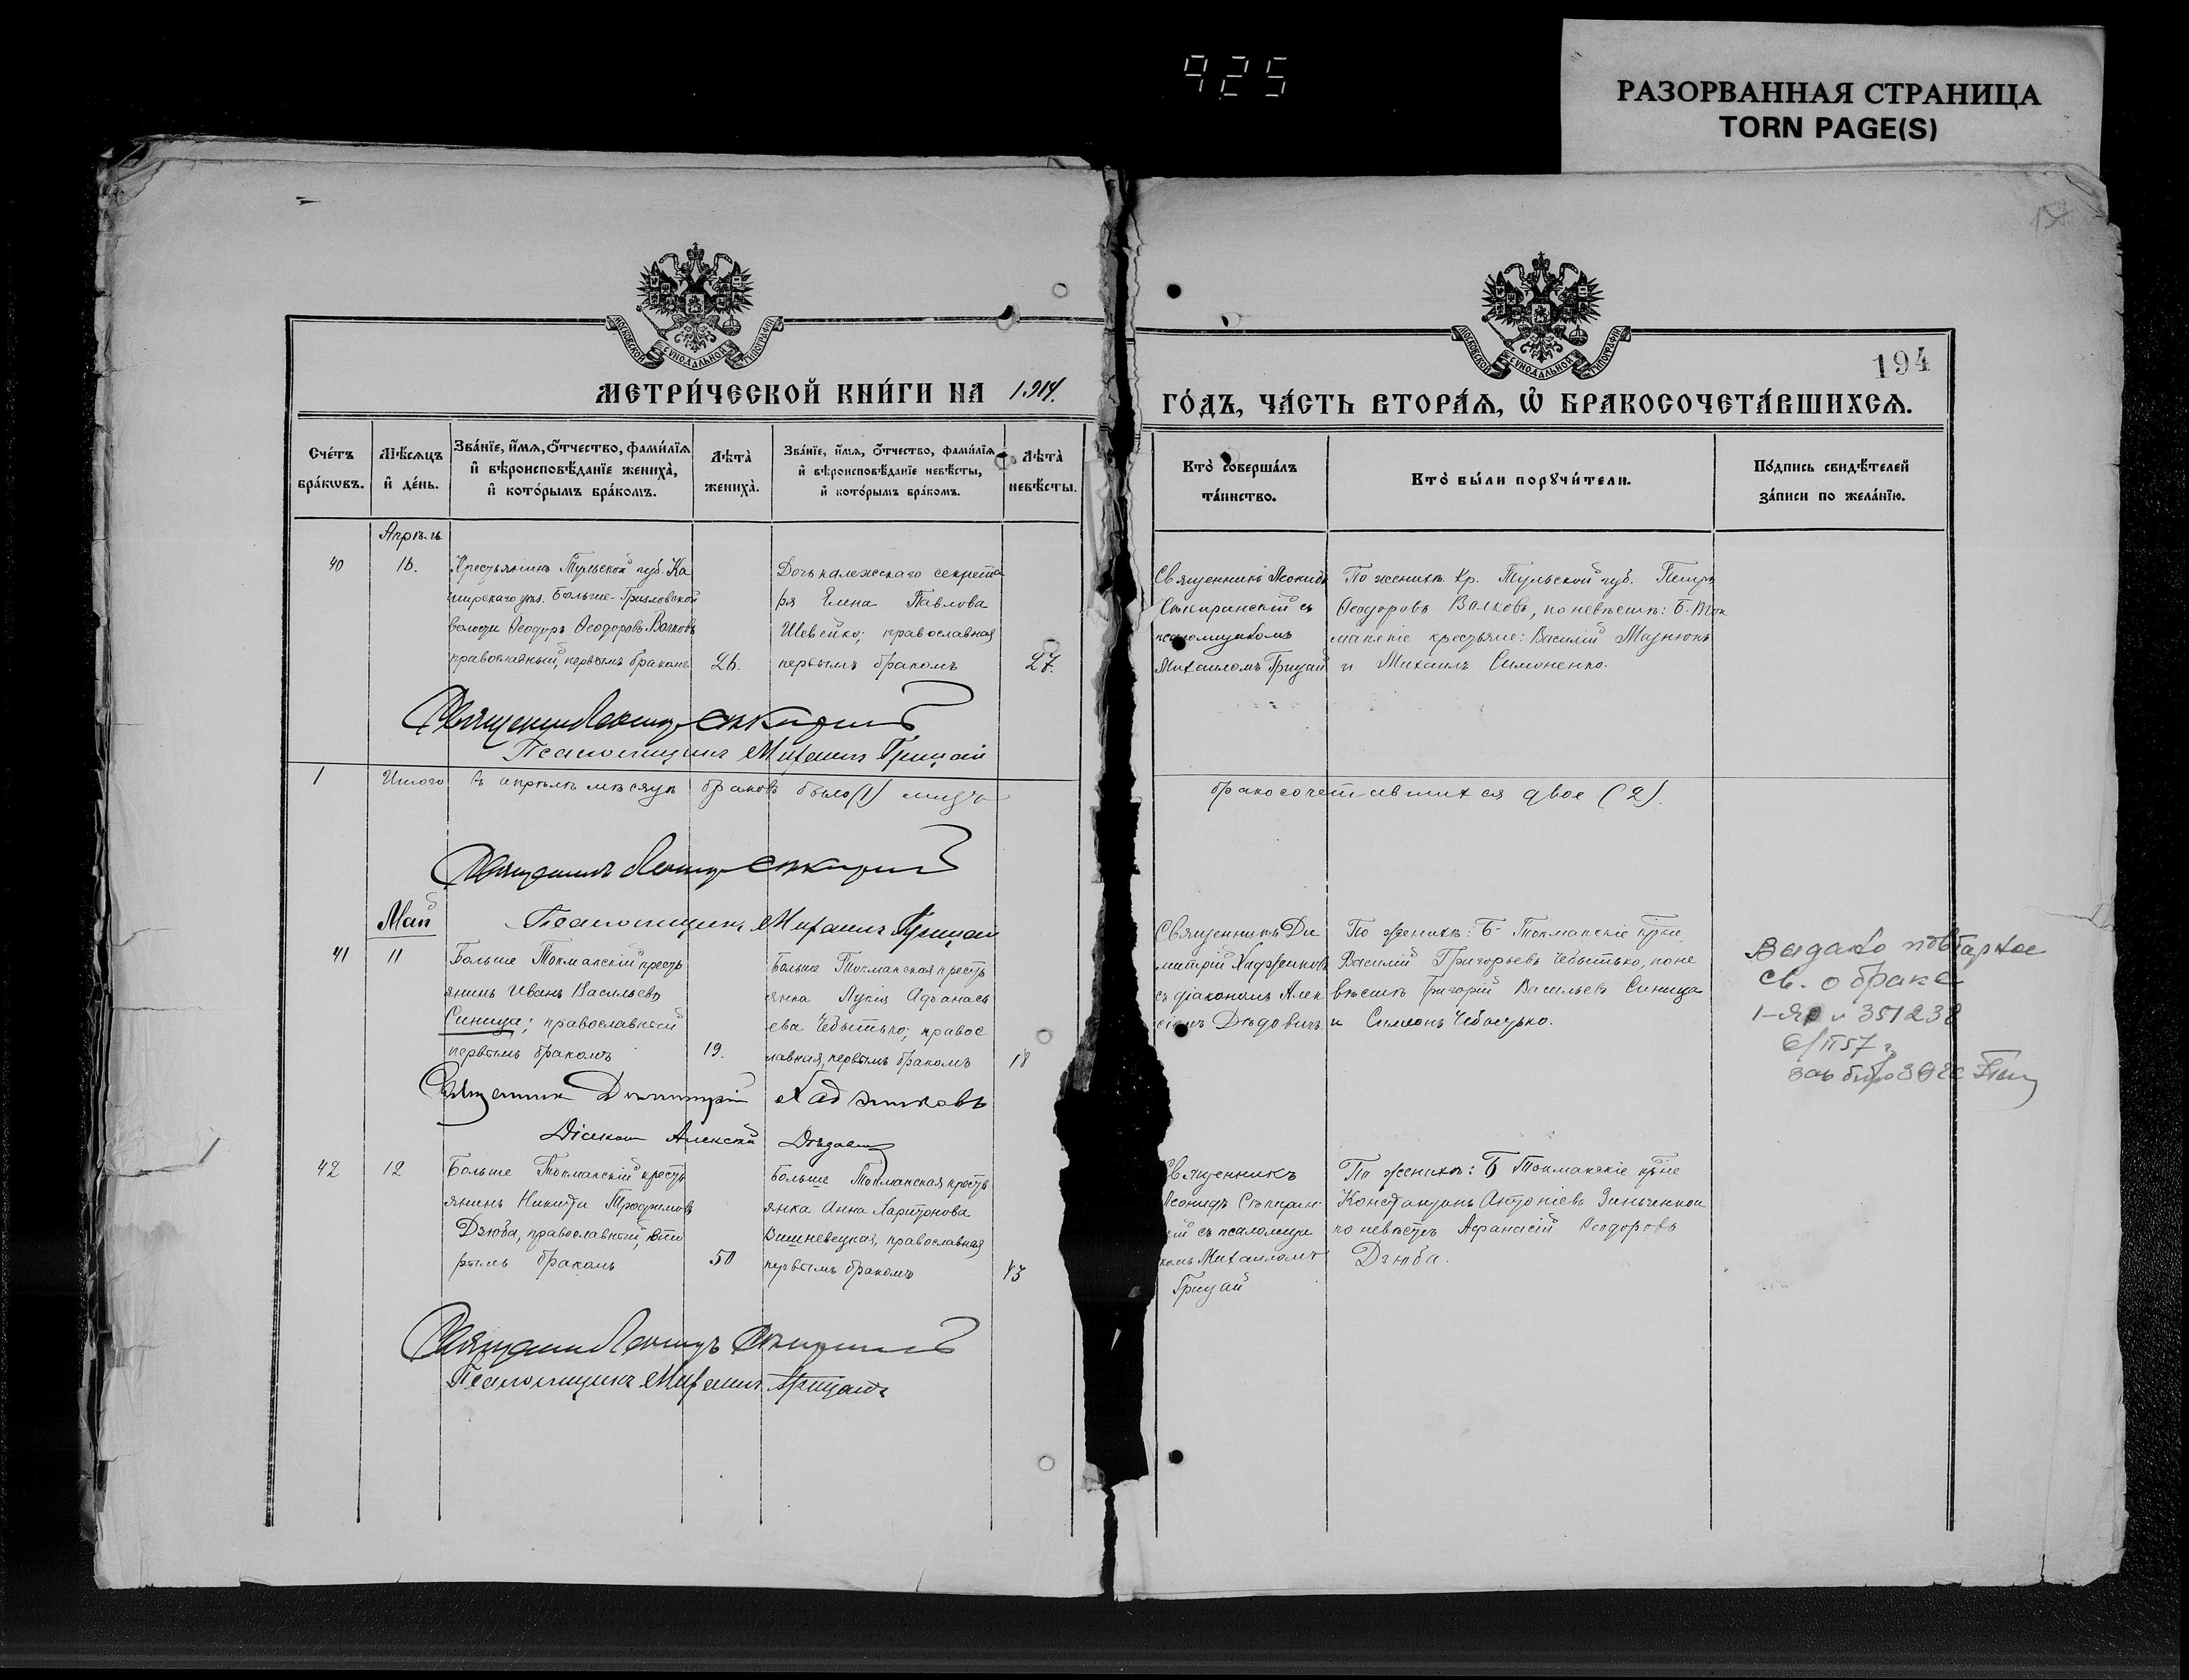 925
РАЗОРВАННАЯ СТРАНИЦА
TORN PAGE(S)
194
МЕТРИ́ЧЕСКОЙ КНИ́ГИ НА 1914.
ГО́ДЪ, ЧА́СТЬ ВТОРА́Я, Ѡ БРАКОСОЧЕТА́ВШИХСЯ.
МОСКОВСКОЙ СѴНОДАЛЬНОЙ ТИПОГРАФІИ
МОСКОВСКОЙ СѴНОДАЛЬНОЙ ТИПОГРАФІИ
Сче́тъ
бра́кѡвъ.
Мѣ́сяцъ
и҆ де́нь.
Зва́нїе, и҆́мя, ѻ҆́тчество, фами́лїя
и҆ вѣроисповѣ́данїе жениха̀,
и҆ кото́рымъ бра́комъ.
Лѣта̀
жениха̀.
Зва́нїе, и҆́мя, ѻ҆́тчество, фами́лїя
и҆ вѣроисповѣ́данїе невѣ́сты,
и҆ кото́рымъ бра́комъ.
Лѣта̀
невѣ́сты.
Кто̀ соверша́лъ
та́инство.
Кто̀ бы́ли порꙋчи́тели.
По́дпись свидѣ́телей
за́писи по жела́нїю.
Апрѣль
40
16.
Крестьянинъ Тульской губ. Ка
ширскаго уѣз. Больше-Грызловской
волости Ѳеодоръ Ѳеодоровъ Волковъ
православный, первымъ бракомъ
26.
Дочь колежскаго секрета
ря Елена Павлова
Шевейко; православная
первымъ бракомъ
27.
Священникъ Леонидъ
Сѣкиранскій съ
псаломщикомъ
Михаиломъ Грицай
По женихѣ Кр. Тульской губ. Петръ
Ѳеодоровъ Волковъ, по невѣстѣ: Б. Ток
макскіе крестьяне: Василій
и Михаилъ Симоненко.
Священникъ Леонидъ
Псаломщикъ Михаилъ Грицай
1
Итого въ апрѣлѣ мѣсяцѣ браковъ было (1)
бракосочетавшихся двое (2).
Священникъ Леонидъ
Псаломщикъ Михаилъ Грицай
Май
41
11
Больше Токмакскій кресть
янинъ Иванъ Васильевъ
Синица; православный
первымъ бракомъ
19.
Больше Токмакская кресть
янка Лукія Аѳанась
ева Чебытько; правос
лавная, первымъ бракомъ
18
Священникъ Ди
митрій Хаджиновъ
съ діакономъ Алек
сіемъ Дѣдовичъ
По женихѣ: Б-Токмакскіе кр-не
Василій Григорьевъ Чебытько, по не
вѣстѣ Григорій Васильевъ Синица
и Симеонъ Чебытько.
Выдано повторное
св. о браке
I-ЯР № 351238
6/II 57 г.
зав бюро ЗАГС
Священникъ Димитрій Хаджиновъ
Діаконъ Алексій Дѣдовичъ
42
12
Больше Токмакскій кресть
янинъ Никита Трофимовъ
Дзюба, православный, вто
рымъ бракомъ
50
Больше Токмакская кресть
янка Анна Харитонова
Вишневецкая, православная
первымъ бракомъ
43
Священникъ
Леонидъ Сѣкиран
кій съ псаломщи
комъ Михаиломъ
Грицай
По женихѣ: Б Токмакскіе кр-не
Константинъ Антоніевъ Зинченко
по невѣстѣ Афанасій Ѳеодоровъ
Дзюба.
Священникъ Леонидъ
Псаломщикъ Михаилъ Грицай